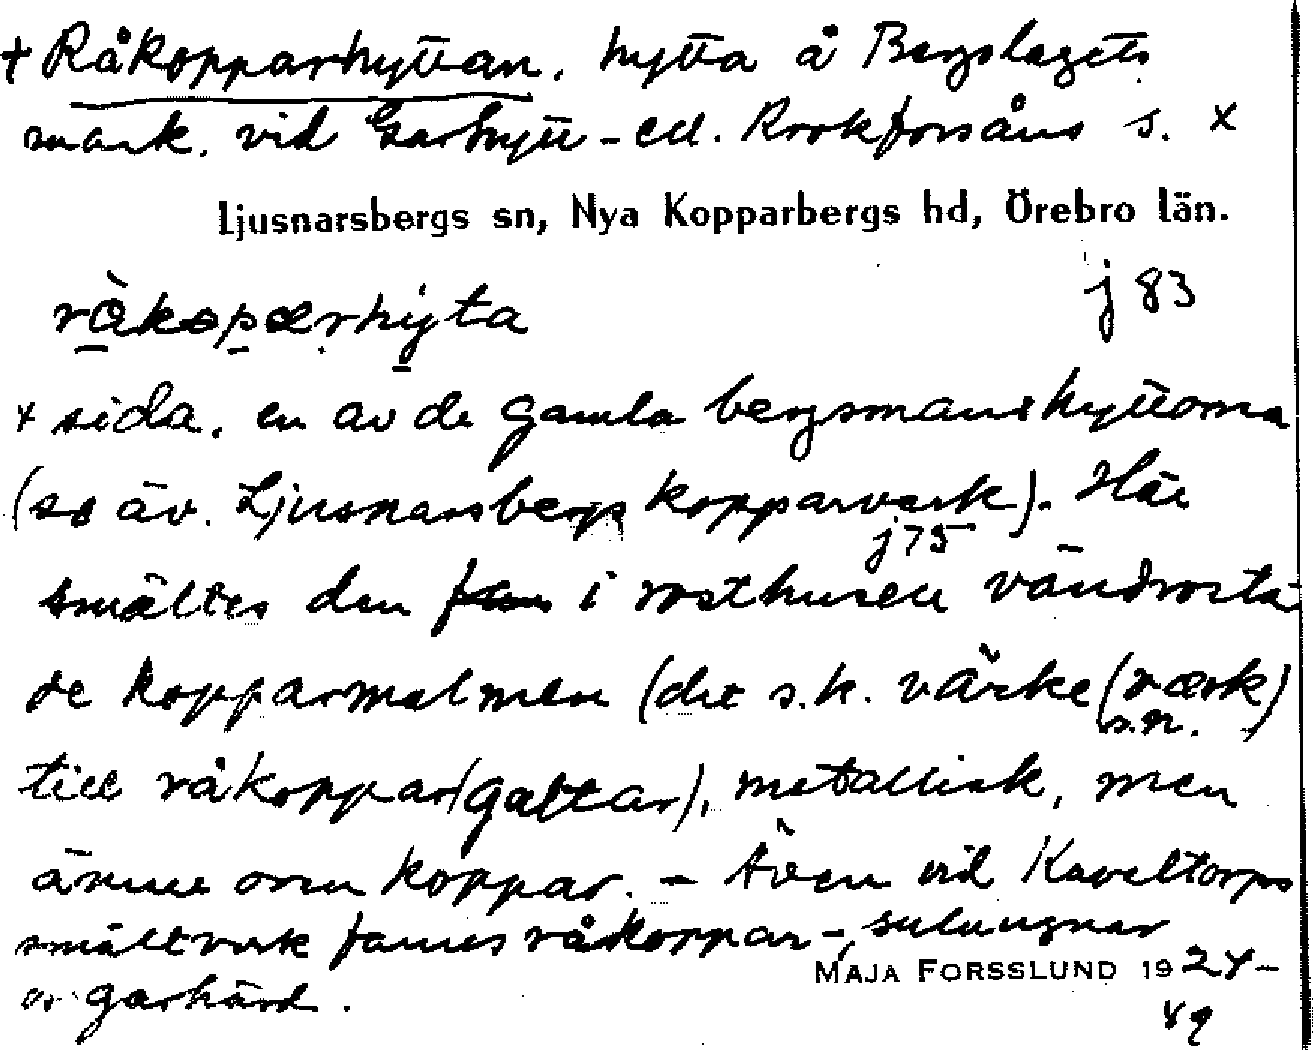 + Råkopparhyttan. hytta å Bergslagets
mark. vid Garhytt- ell. Rookforsåns s. x
Ljusnarsbergs sn, Nya Kopparbergs hd, Örebro län.
j 83
råkopærhyta
x sida. en av de gamla bergsmanshyttorna
(se äv. Ljusnarsbergs kopparverk). Här
j 75
smältes den i rosthusen vändrosta
de kopparmalmen (det s.k. värke (værk)
s.n.
till råkoppar (galtar), metallisk, men
ännu oren koppar. - Även vid Kaveltorps
smältverk fanns råkoppar-, suluugnar
o. garhärd.
MAJA FORSSLUND 1924-
49